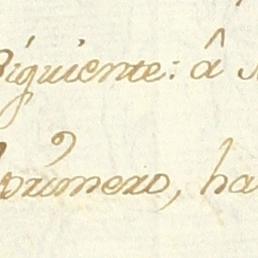 Siguiente: â
primero, ha